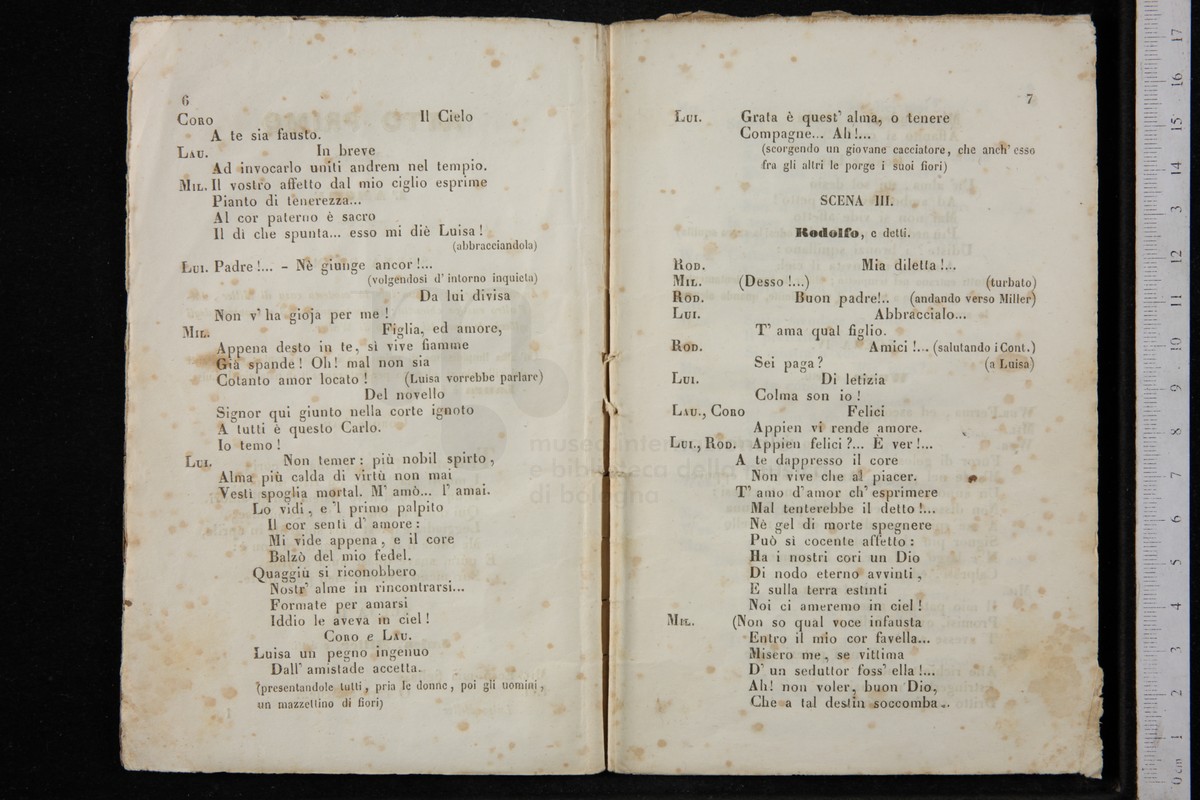 6
CORO Il Cielo
A te sia fausto.
LAU. In breve
Ad invocarlo uniti andrem nel tempio.
MIL. Il vostro affetto dal mio ciglio esprime
Pianto di tenerezza...
Al cor paterno è sacro
Il dì che spunta... esso mi diè Luisa!
(abbracciandola)
LUI. Padre!... - Nè giunge ancor!...
(volgendosi d' intorno inquieta)
Da lui divisa
Non v' ha gioja per me!
MIL. Figlia, ed amore,
Appena desto in te, sì vive fiamme
Già spande! Oh! mal non sia
Cotanto amor locato! (Luisa vorrebbe parlare)
Del novello
Signor qui giunto nella corte ignoto
A tutti è questo Carlo.
Io temo!
LUI. Non temer: più nobil spirto,
Alma più calda di virtù non mai
Vestì spoglia mortal. M' amò... l' amai.
Lo vidi, e 'l primo palpito
Il cor sentì d' amore:
Mi vide appena, e il core
Balzò del mio fedel.
Quaggiù si riconobbero
Nostr' alme in rincontrarsi...
Formate per amarsi
Iddio le aveva in ciel!
CORO e LAU.
Luisa un pegno ingenuo
Dall' amistade accetta.
(presentandole tutti, pria le donne, poi gli uomini,
un mazzettino di fiori)
7
LUI. Grata è quest' alma, o tenere
Compagne... Ah!...
(scorgendo un giovane cacciatore, che anch' esso
fra gli altri le porge i suoi fiori)
SCENA III.
Rodolfo, e detti.
ROD. Mia diletta!...
MIL. (Desso!...) (turbato)
ROD. Buon padre!.. (andando verso Miller)
LUI. Abbraccialo...
T' ama qual figlio.
ROD. Amici!... (salutando i Cont.)
Sei paga? (a Luisa)
LUI. Di letizia
Colma son io!
LAU., CORO Felici
Appien vi rende amore.
LUI., ROD. Appien felici?... È ver!...
A te dappresso il core
Non vive che al piacer.
T' amo d'amor ch' esprimere
Mal tenterebbe il detto!...
Nè gel di morte spegnere
Può sì cocente affetto:
Ha i nostri cori un Dio
Di nodo eterno avvinti,
E sulla terra estinti
Noi ci ameremo in ciel!
MIL. (Non so qual voce infausta
Entro il mio cor favella...
Misero me, se vittima
D' un seduttor foss' ella!...
Ah! non voler, buon Dio,
Che a tal destin soccomba...
museo internazionale
e biblioteca della musica
di bologna
0 cm 1 2 3 4 5 6 7 8 9 10 11 12 13 14 15 16 17